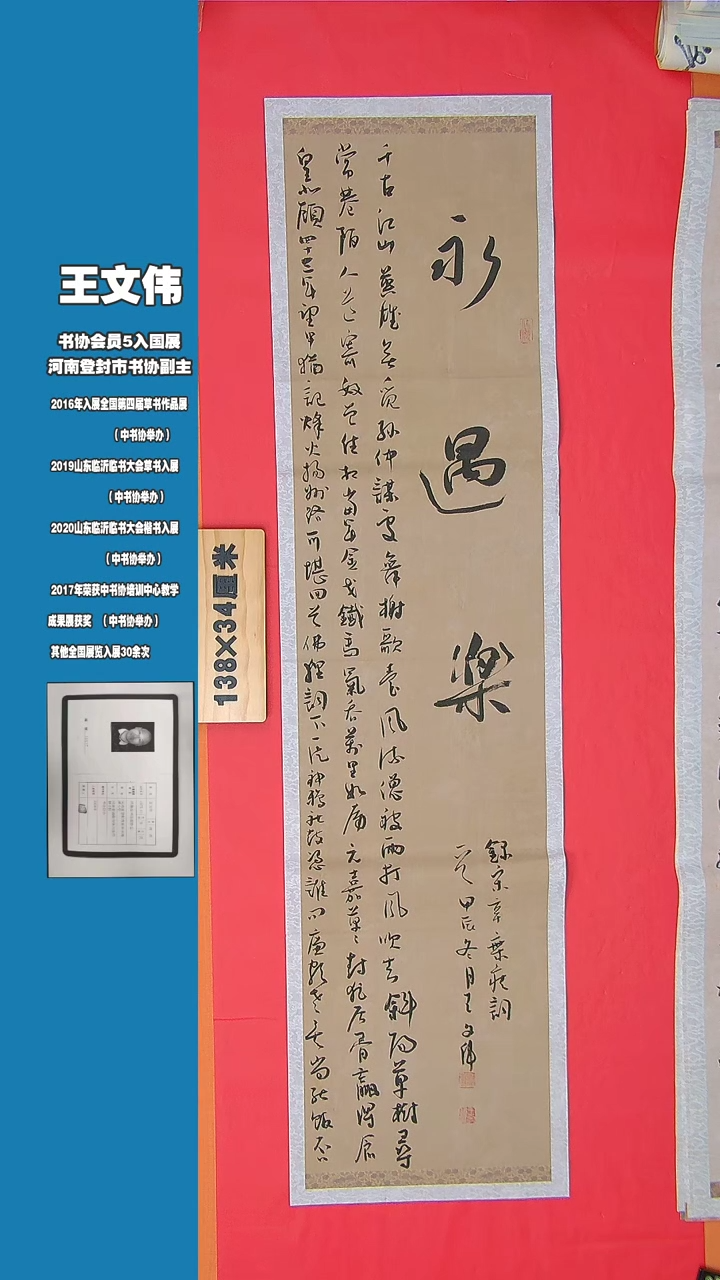 王文伟
书协会员5入国展
河南登封市书协副主
2016年入展全国第四届草书作品展
（中书协举办）
2019山东临沂临书大会草书入展
（中书协举办）
2020山东临沂临书大会楷书入展
（中书协举办）
2017年荣获中书协培训中心教学
成果展获奖 （中书协举办）
其他全国展览入展30余次
138×34厘米
永遇樂
錄宋辛棄疾詞
一首甲辰冬月王文偉
千古江山英雄無覓孫仲謀處舞榭歌臺風流總被雨打風吹去斜陽草樹尋
常巷陌人道寄奴曾住想當年金戈鐵馬氣吞萬里如虎元嘉草〻封狼居胥贏得倉
皇北顧四十三年望中猶記烽火揚州路可堪回首佛貍祠下一片神鴉社鼓憑誰問廉頗老矣尚能飯否